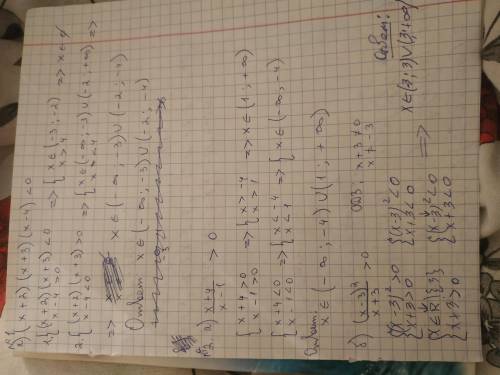 {(x+2)(x+3)(x-4)<0
1. {(x+2)(x+3)<0
x-4>0 => {x∈(-3;-2)
x>4 => x∈
2. {(x+2)(x+3)>0
x-4<0 => {x∈(-∞;-3)∪(-2;+∞)
x<4 =>
=> x∈(-∞;-3)∪(-2;-4)
Ответ: x∈(-∞;-3)∪(-2;-4)
№2. а) x+4/x-1 > 0
{x+4>0
x-1>0 => {x>-4
x>1 => x∈(1;+∞)
{x+4<0
x-1<0 => {x<-4
x<1 => {x∈(-∞;-4)
Ответ: x∈(-∞;-4)∪(1;+∞)
б) (x-3)²/x+3 >0 ОДЗ: x+3≠0
x≠-3
{(x-3)²>0
x+3>0 {(x-3)²<0
x+3<0
{x∈R\{3}
x+3>0 {(x-3)²<0
x+3<0 => Ответ:
x∈(-3;3)∪(3;+∞)